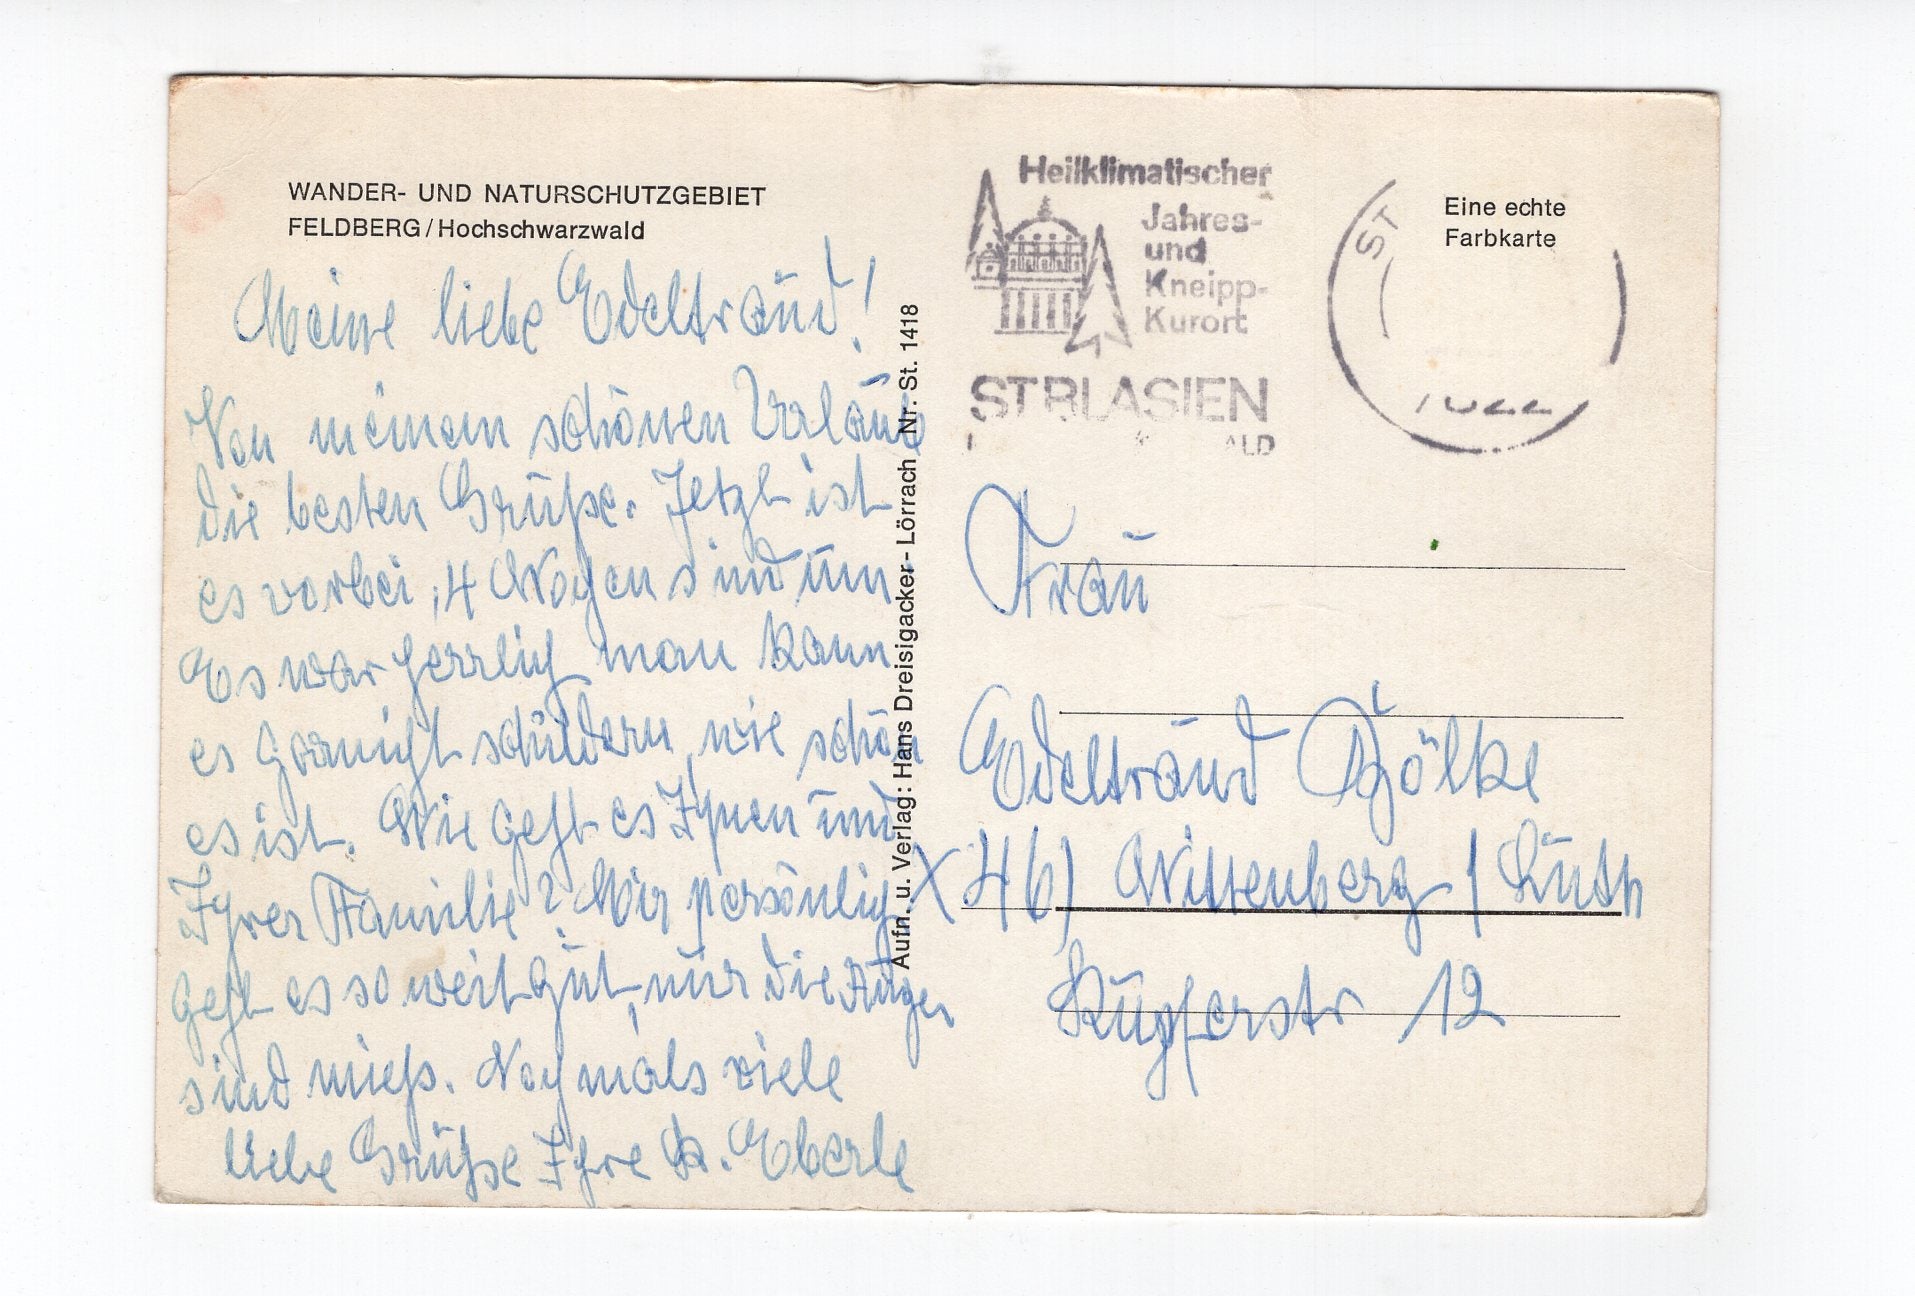 WANDER- UND NATURSCHUTZGEBIET
FELDBERG/Hochschwarzwald
Meine liebe Edeltraud!
Von meinem schönen Urlaub
die besten Grüße. Jetzt ist
es vorbei, 4 Wochen sind um.
Es war herrlich man kann
es garnicht schildern, wie schön
es ist. Wie geht es Ihnen und
Ihrer Familie? Mir persönlich
geht es so weit gut, nur die Augen
sind mieß. Nochmals viele
liebe Grüße Ihre K. Eberle
Aufn. u. Verlag: Hans Dreisigacker - Lörrach Nr. St. 1418
Heilklimatischer
Jahres-
und
Kneipp-
Kurort
ST BLASIEN
ST
7822
Eine echte
Farbkarte
Frau
Edeltraud
X 46) Wittenberg / Luth
Kupferstr 12